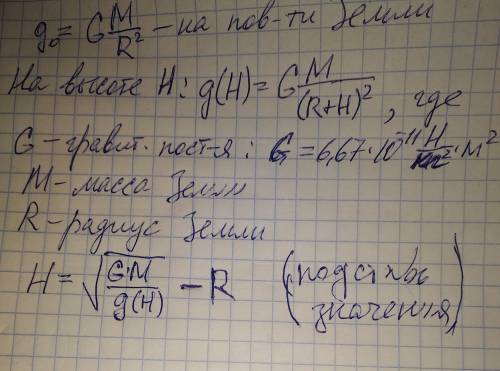 g₀ = G M/R² – на пов-ти Земли
На высоте H: g(H) = G M/(R+H)², где
G – гравит. пост-я: G = 6,67·10⁻¹¹ Н/ ·м²
M – масса Земли
R – радиус Земли
H = √(G·M/g(H)) – R (подст
значения)